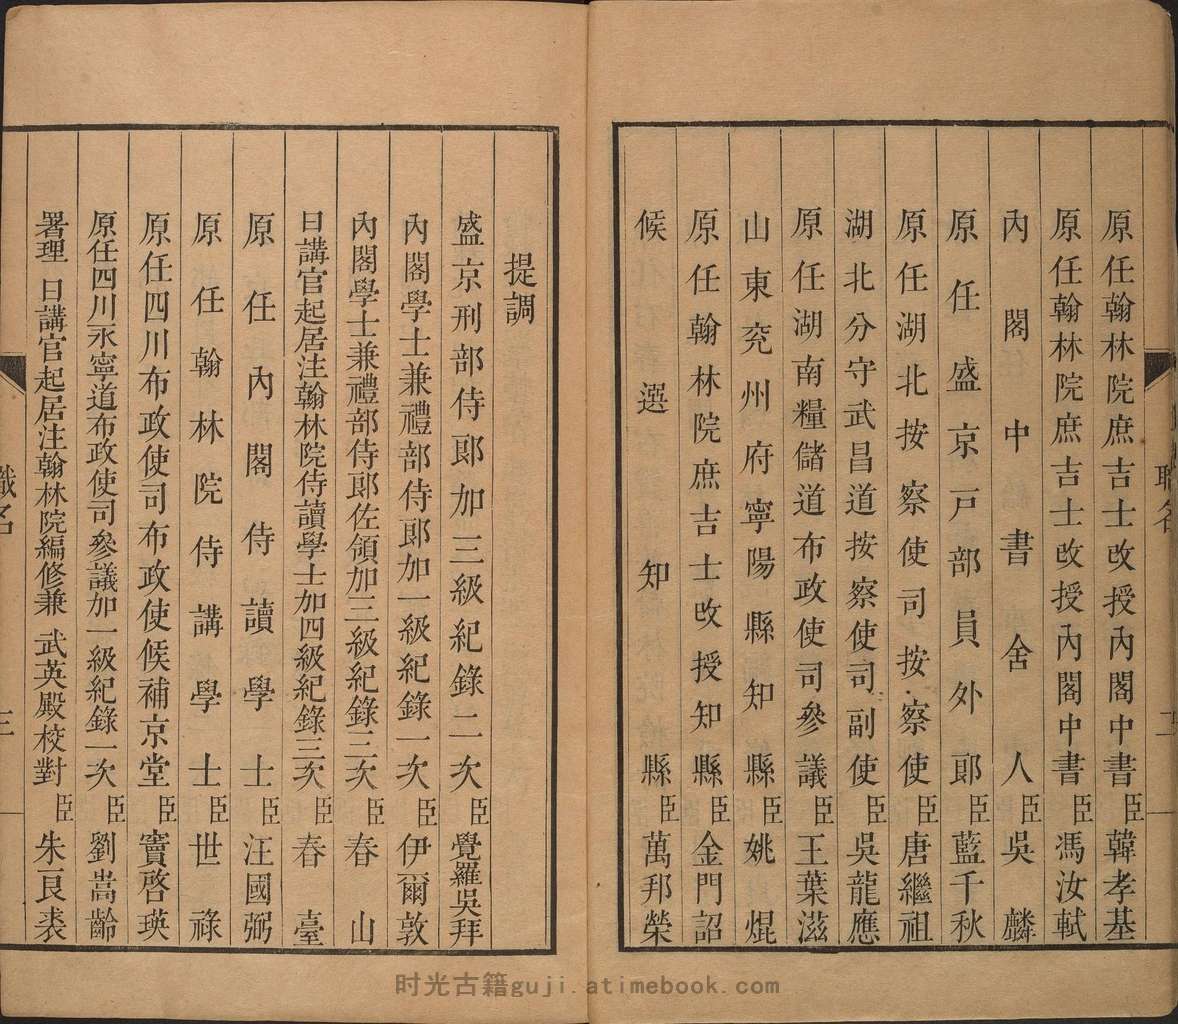 原任翰林院庶吉士改授內閣中書臣韓孝基
原任翰林院庶吉士改授內閣中書臣馮汝軾
內閣中書舍人臣吳麟
原任盛京戸部員外郎臣藍千秋
原任湖北按察使司按察使臣唐繼祖
湖北分守武昌道按察使司副使臣吳龍應
原任湖南糧儲道布政使司參議臣王葉滋
山東兗州府寧陽縣知縣臣姚焜
原任翰林院庶吉士改授知縣臣金門詔
候選知縣臣萬邦榮
職名
提調
盛京刑部侍郎加三級紀錄二次臣覺羅吳拜
內閣學士兼禮部侍郎加一級紀錄一次臣伊爾敦
內閣學士兼禮部侍郎佐領加三級紀錄三次臣春山
日講官起居注翰林院侍讀學士加四級紀錄三次臣春臺
原任內閣侍讀學士臣汪國弼
原任翰林院侍講學士臣世祿
原任四川布政使司布政使候補京堂臣竇啓瑛
原任四川永寧道布政使司參議加一級紀錄一次臣劉嵩齡
署理 日講官起居注翰林院編修兼 武英殿校對臣朱良裘
職名
三
时光古籍guji.atimebook.com